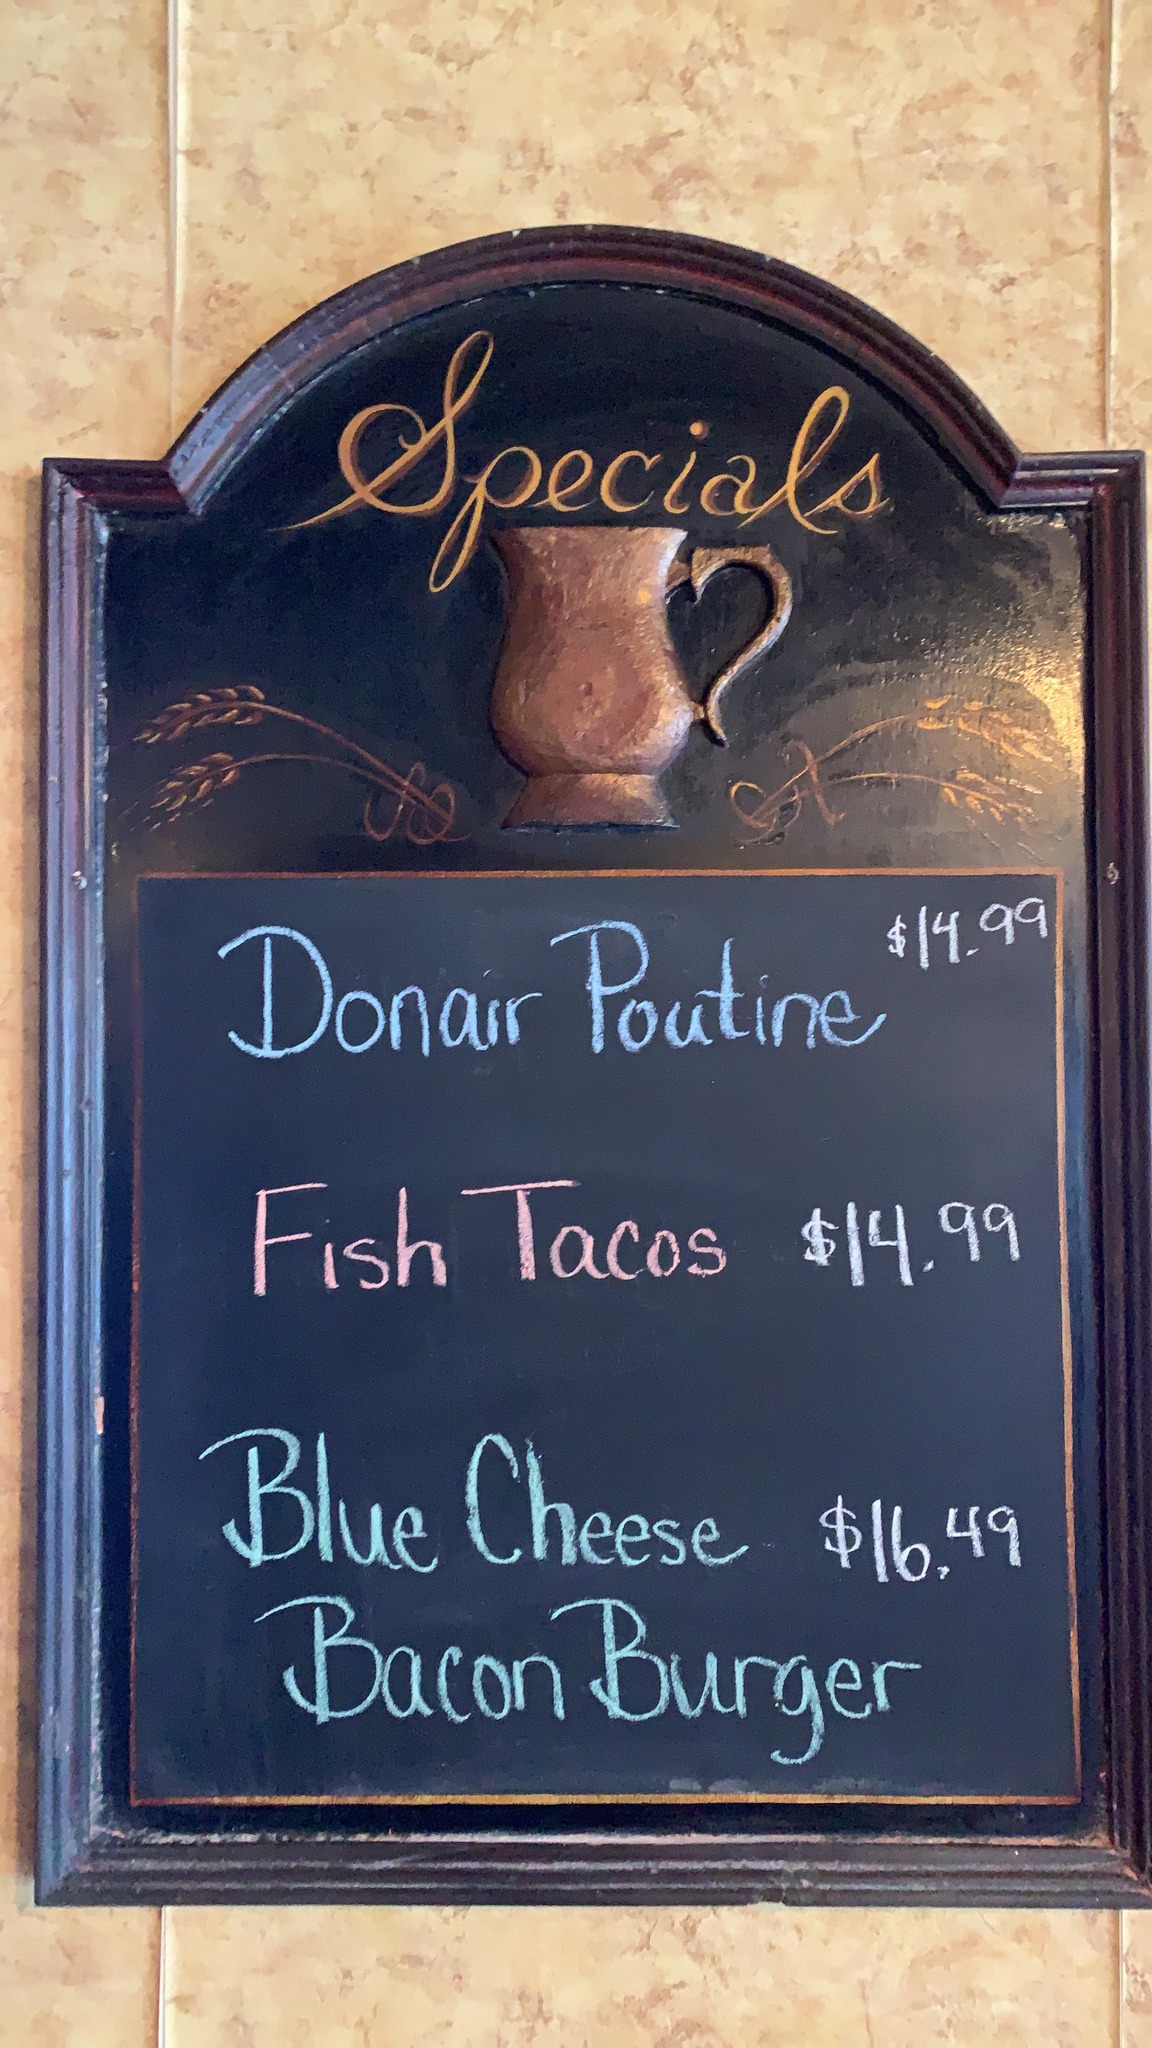 Specials
Donair Poutine $14.99
Fish Tacos $14.99
Blue Cheese $16.49
Bacon Burger